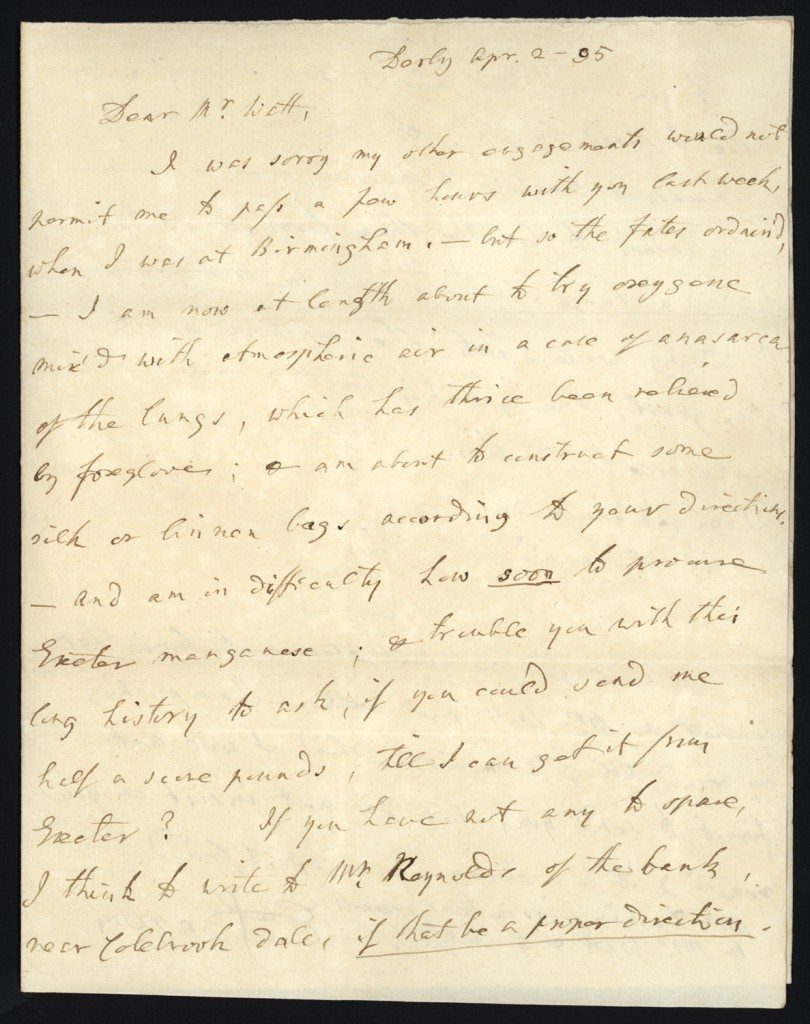 Derby Apr. 2 - 95
Dear Mr. Watt,
I was sorry my other engagements would not
permit me to pass a few hours with you last week,
when I was at Birmingham. — but so the fates ordain'd,
— I am now at length about to try oxygene
mix'd with atmospheric air in a case of anasarca
of the lungs, which has thrice been relieved
by foxglove; & am about to construct some
silk or linnen bags according to your directions.
— and am in difficulty how soon to procure
Exeter manganese; & trouble you with this
long history to ask, if you could send me
half a score pounds, till I can get it from
Exeter? If you have not any to spare,
I think to write to Mr. Reynolds of the bank,
near Colebrook dale, if that be a proper direction.